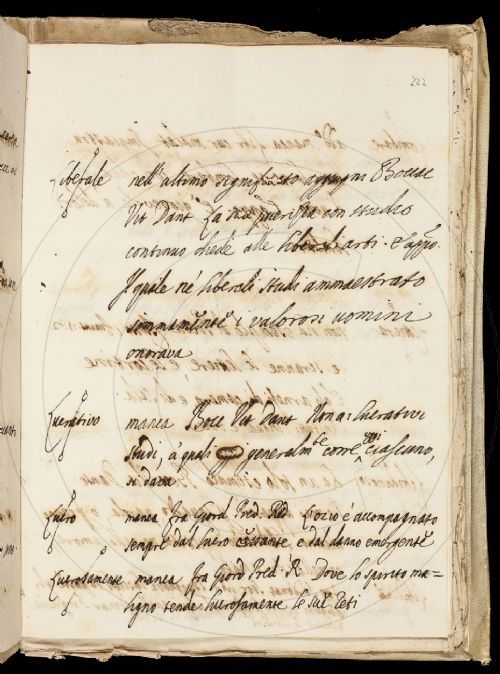 222
Liberale nell'ultimo significato aggiugni Boccac
Vit Dant La sua puerizia con studio
continuo diede alle liberali arti. E appo.
Il quale ne' liberali studi ammaestrato
sommamente i valorosi uomini
onorava
Lucrativo manca Bocc Vit Dant Non a' lucrativi
studi, a' quali generalmte corre oggi ciascuno,
si dava
Lucro manca fra Giord. Pred. Red. L'ozio è accompagnato
sempre dal lucro cessante e dal danno emergente
Lucrosamente manca Fra Giord Pred. R Dove lo spirito ma=
ligno tende lucrosamente le sue reti